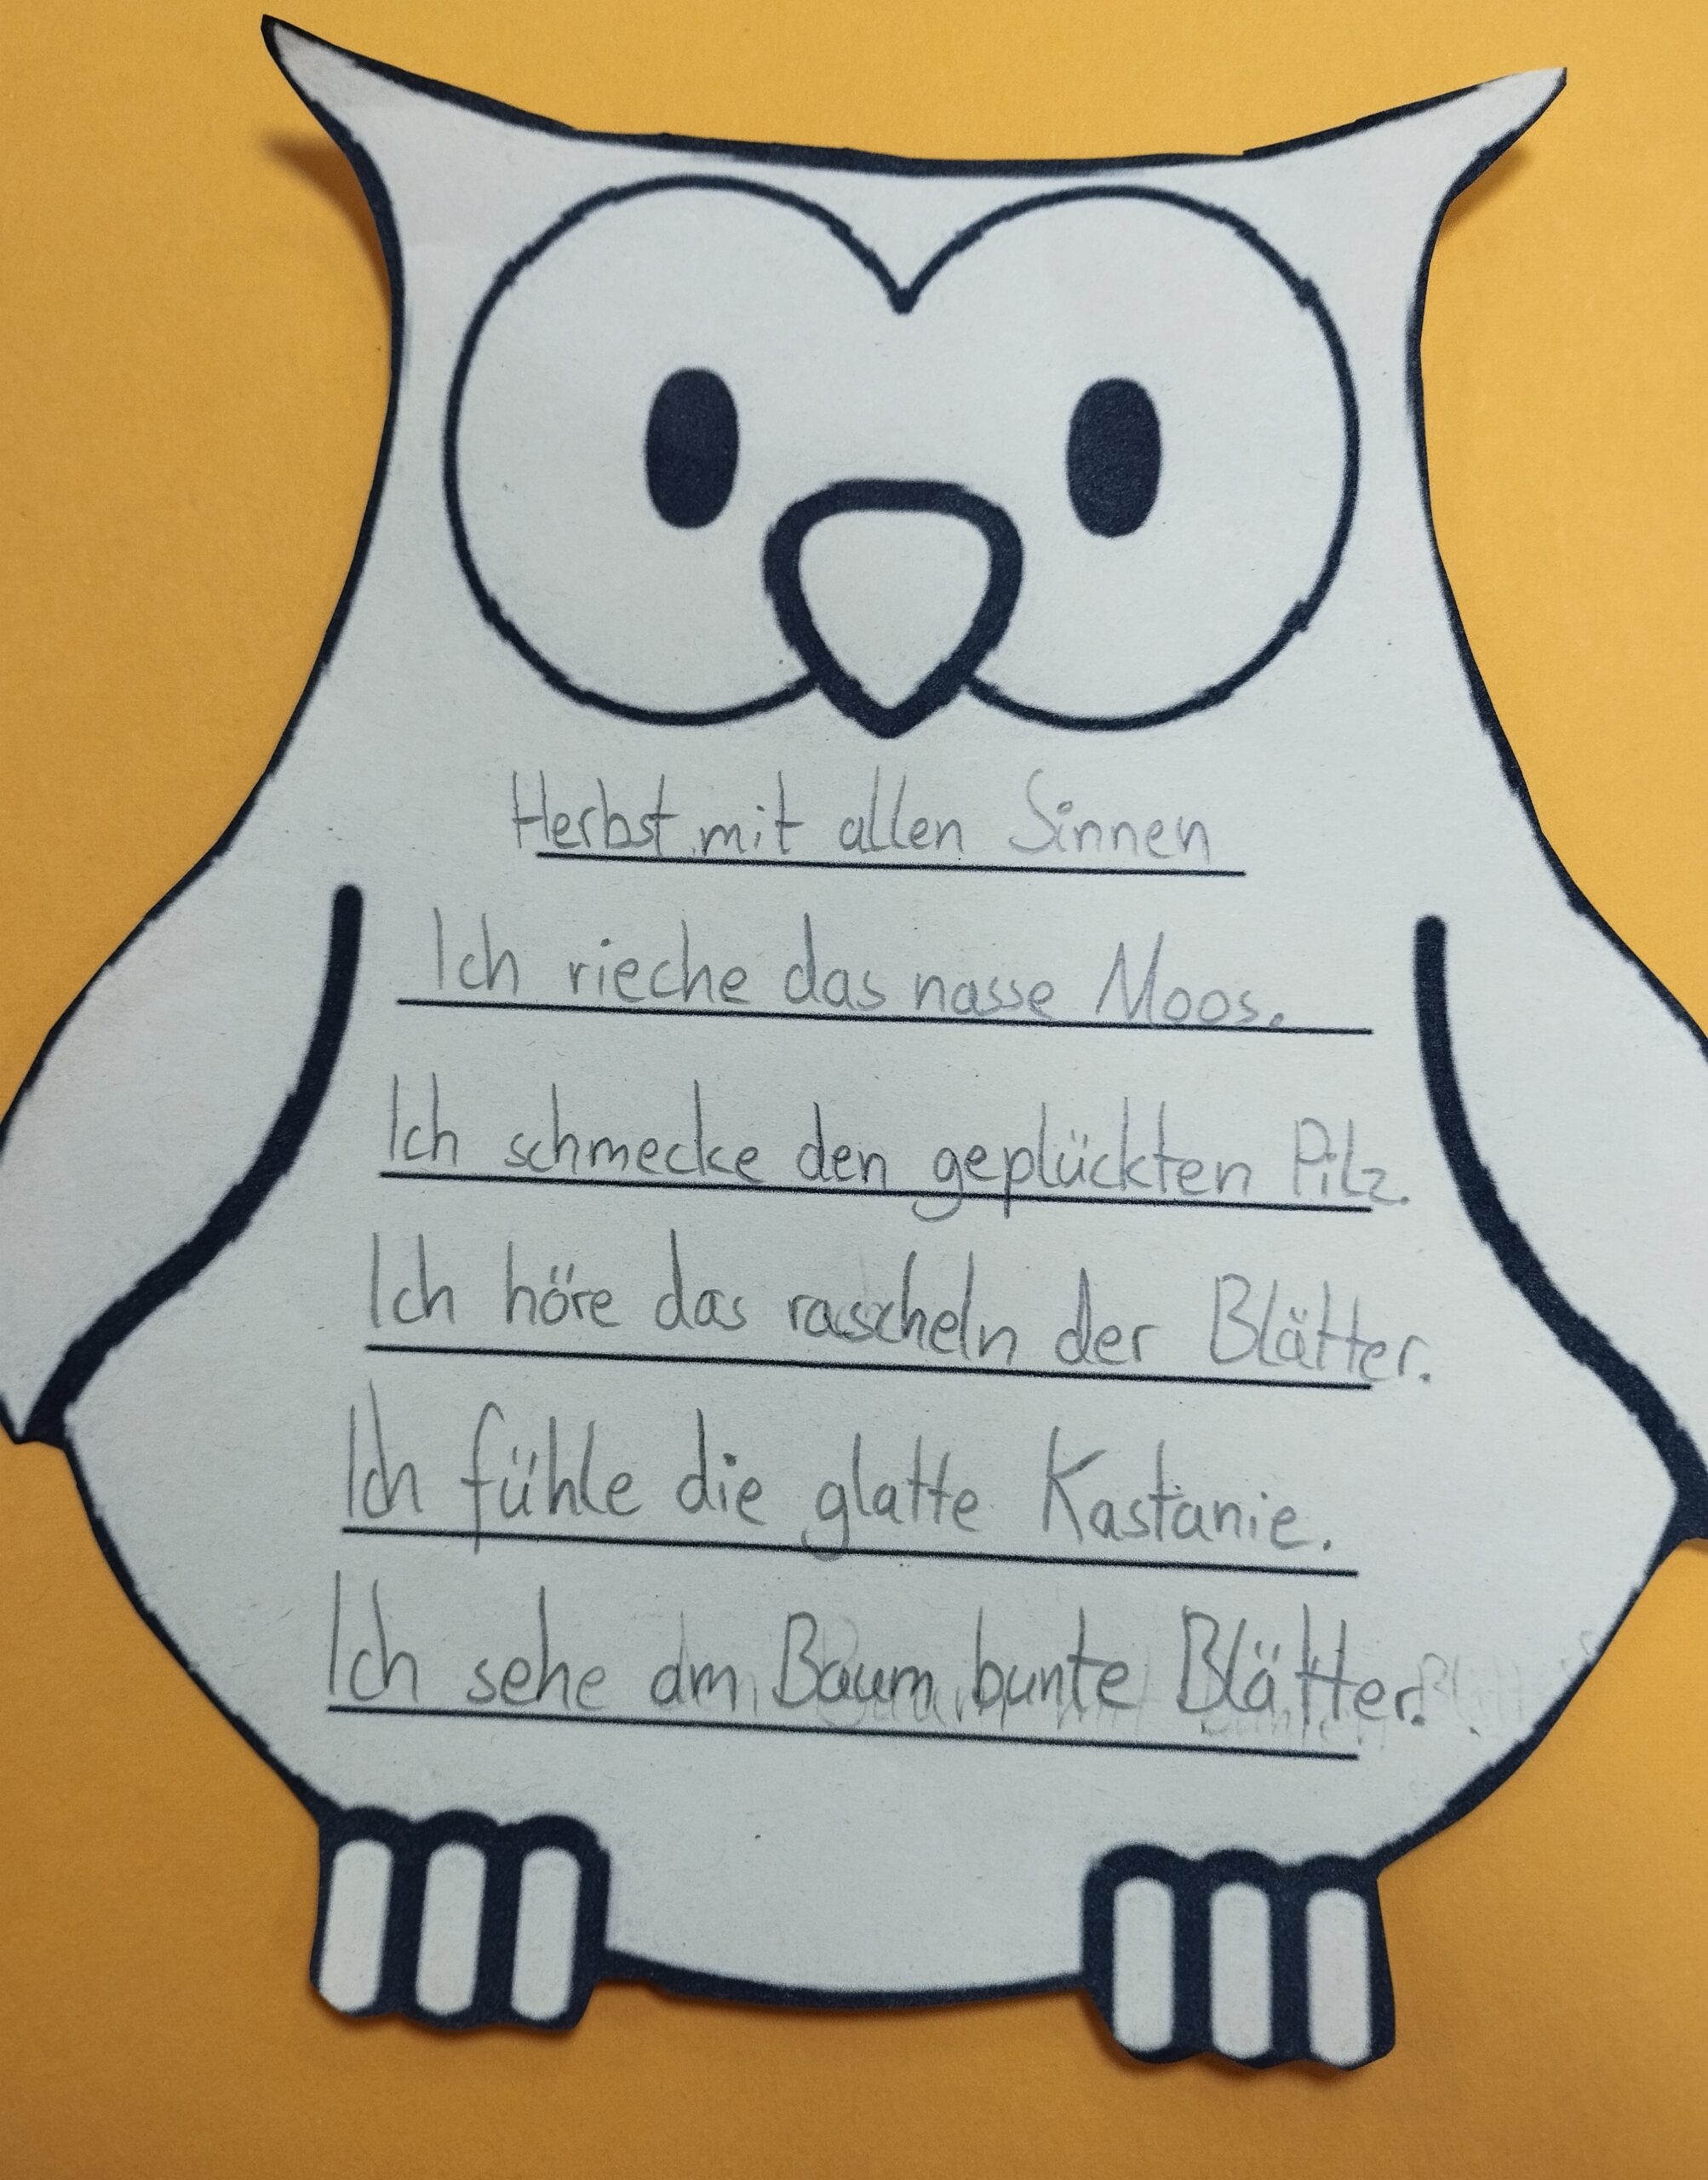 Herbst mit allen Sinnen
Ich rieche das nasse Moos.
Ich schmecke den geplückten Pilz.
Ich höre das rascheln der Blätter.
Ich fühle die glatte Kastanie.
Ich sehe am Baum bunte Blätter.